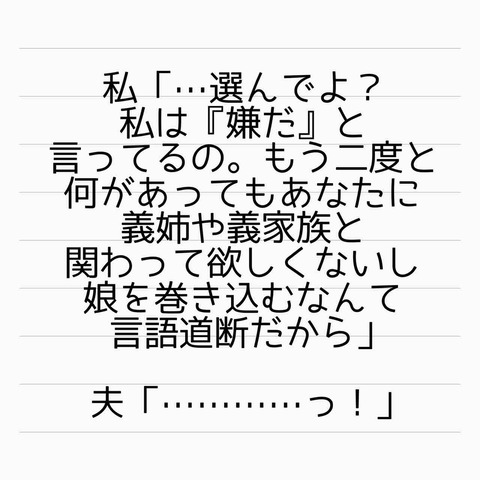 私「…選んでよ？
私は『嫌だ』と
言ってるの。もう二度と
何があってもあなたに
義姉や義家族と
関わって欲しくないし
娘を巻き込むなんて
言語道断だから」
夫「…………っ！」